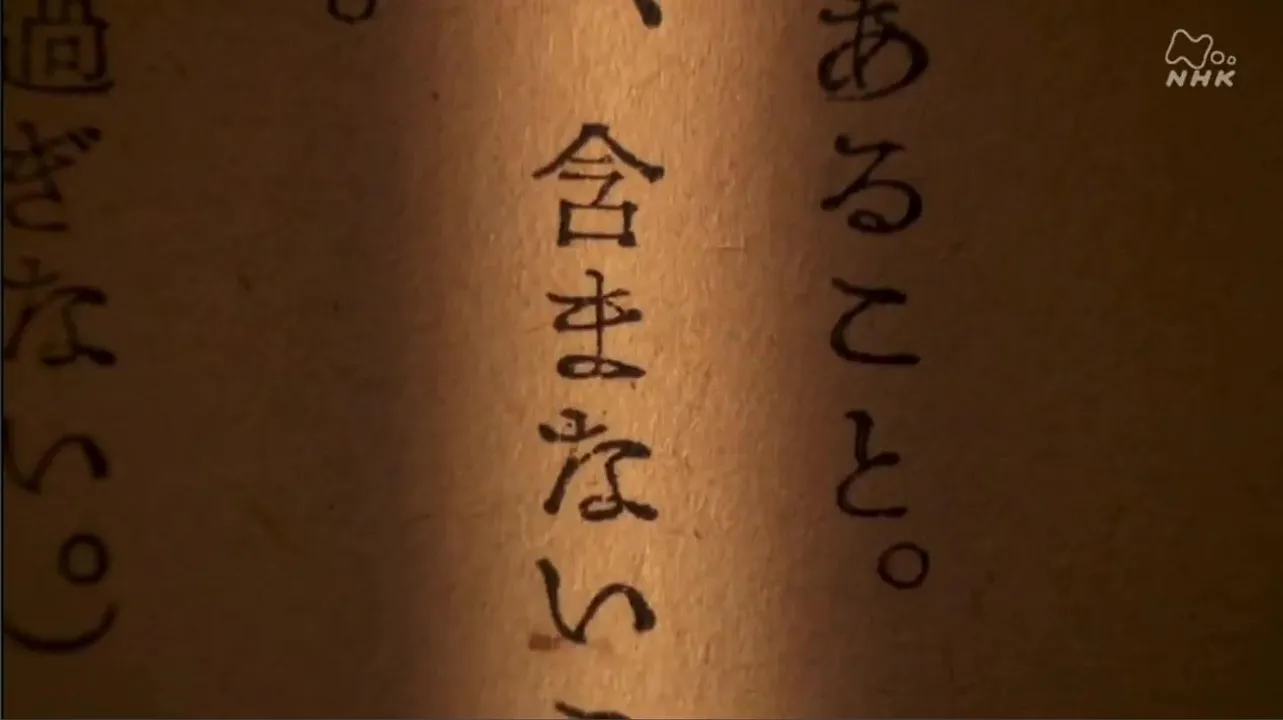 あること。
、含まない
。
過ぎない。)
NHK